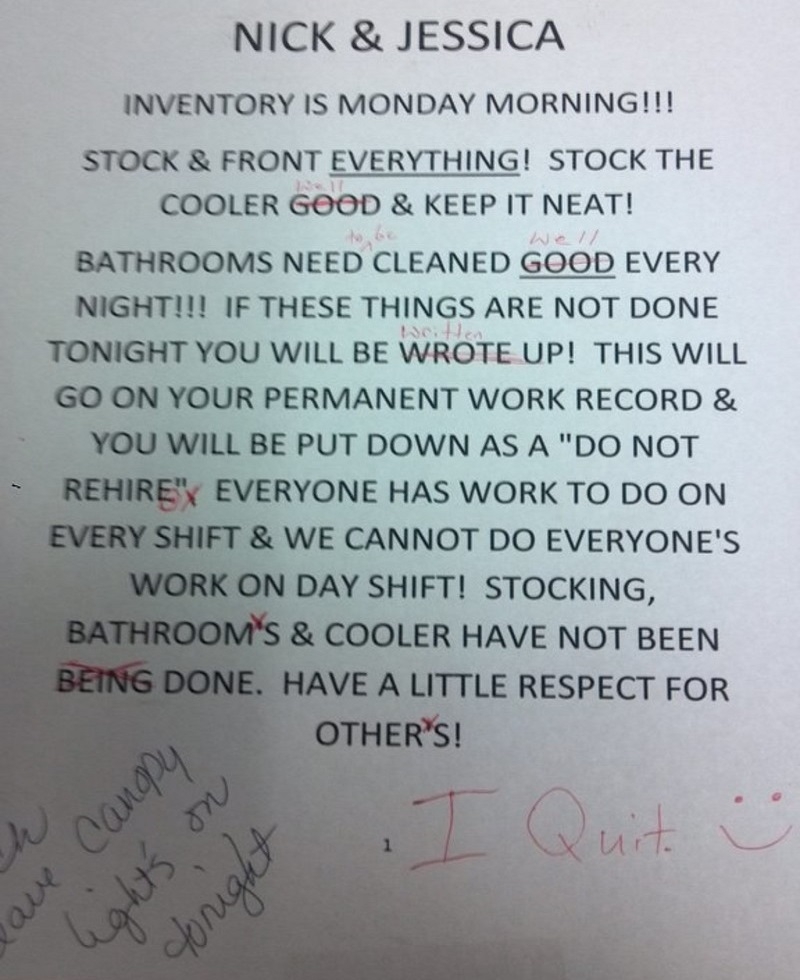 NICK & JESSICA
INVENTORY IS MONDAY MORNING!!!
STOCK & FRONT EVERYTHING! STOCK THE
well
COOLER GOOD & KEEP IT NEAT!
to be well
BATHROOMS NEED CLEANED GOOD EVERY
NIGHT!!! IF THESE THINGS ARE NOT DONE
written
TONIGHT YOU WILL BE WROTE UP! THIS WILL
GO ON YOUR PERMANENT WORK RECORD &
YOU WILL BE PUT DOWN AS A "DO NOT
REHIRE". EVERYONE HAS WORK TO DO ON
EVERY SHIFT & WE CANNOT DO EVERYONE'S
WORK ON DAY SHIFT! STOCKING,
BATHROOM'S & COOLER HAVE NOT BEEN
BEING DONE. HAVE A LITTLE RESPECT FOR
OTHER'S!
canopy
light's on
tonight
1 I Quit. :)